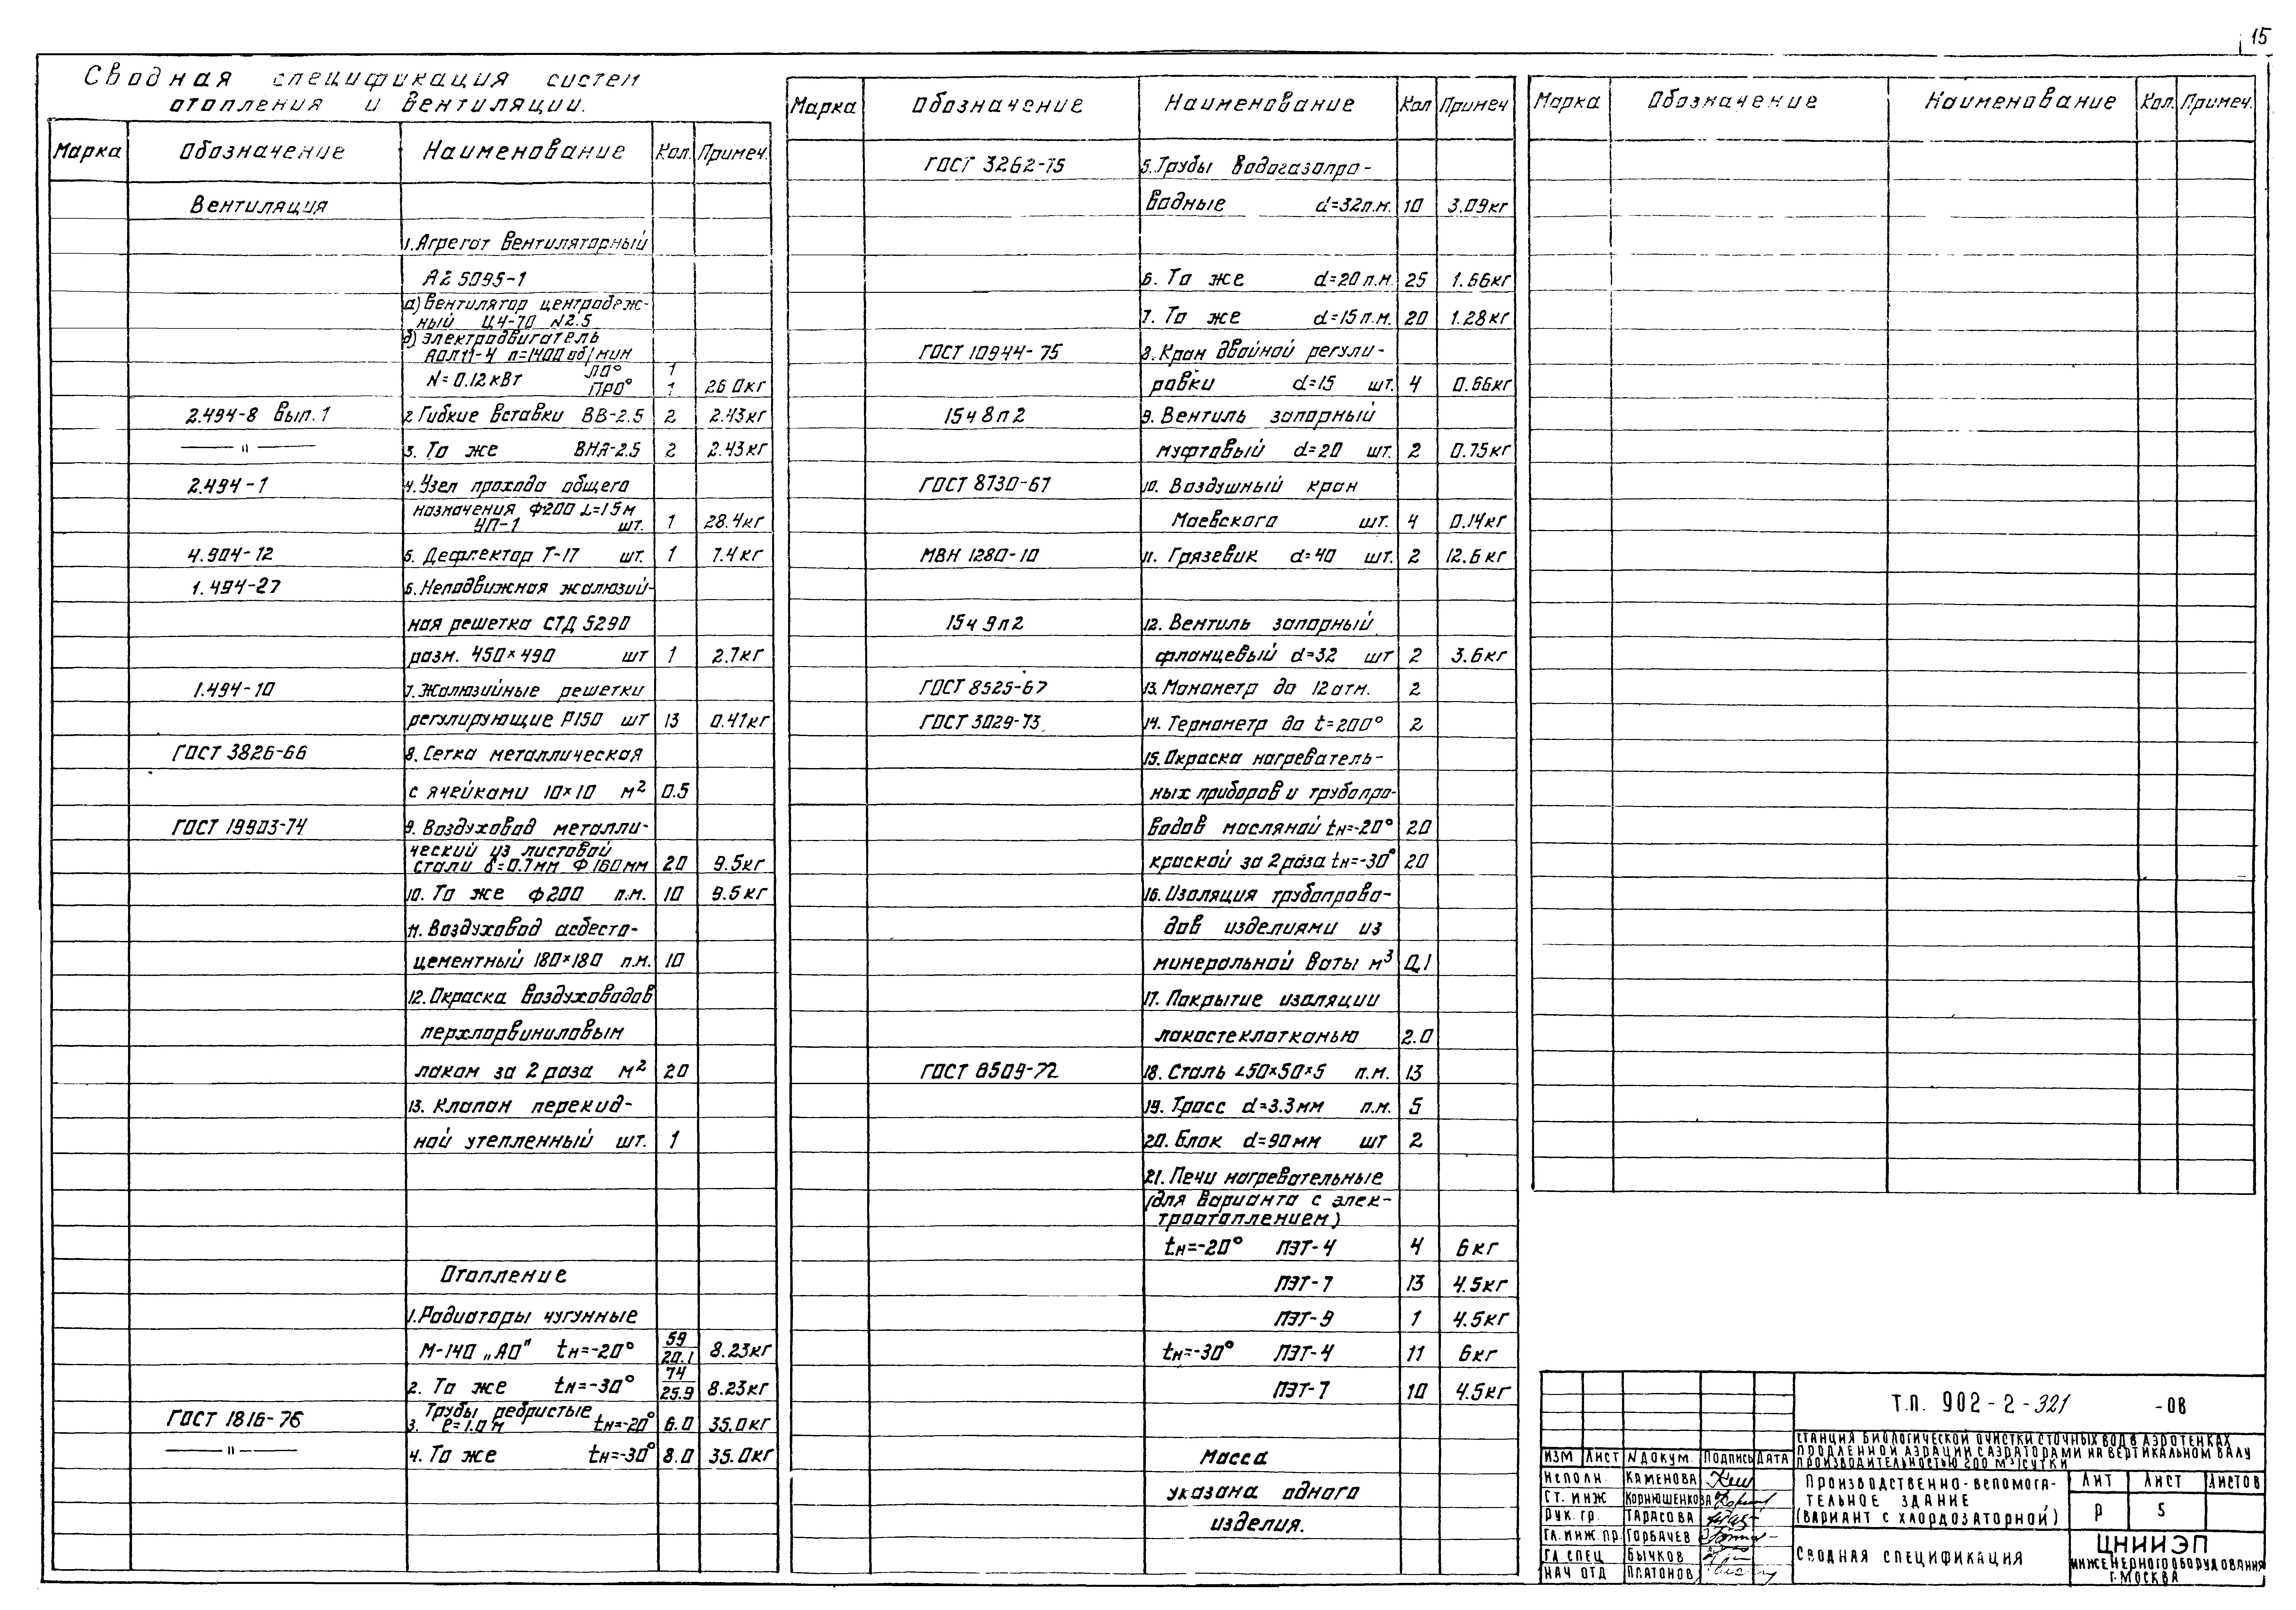 15
Сводная спецификация систем
отопления и вентиляции.
Марка Обозначение Наименование Кол. Примеч.
Вентиляция
1. Агрегат вентиляторный
А2 5095-1
а) Вентилятор центробеж-
ный Ц4-70 №2.5
б) Электродвигатель
АОЛ11-4 n=1400 об/мин
N=0.12кВт Л0° 1
ПР0° 1 26.0кг
2.494-8 вып.1 2. Гибкие вставки ВВ-2.5 2 2.43кг
—— " —— 3. То же ВНА-2.5 2 2.43кг
2.494-1 4. Узел прохода общего
назначения Ф200 L=15м
УП-1 шт. 1 28.4кг
4.904-12 5. Дефлектор Т-17 шт. 1 7.4кг
1.494-27 6. Неподвижная жалюзий-
ная решетка СТД 5290
разм. 450×490 шт 1 2.7кг
1.494-10 7. Жалюзийные решетки
регулирующие Р150 шт 13 0.41кг
ГОСТ 3826-66 8. Сетка металлическая
с ячейками 10×10 м² 0.5
ГОСТ 19903-74 9. Воздуховод металли-
ческий из листовой
стали δ=0.7мм Ф160мм 20 9.5кг
10. То же Ф200 п.м. 10 9.5кг
11. Воздуховод асбесто-
цементный 180×180 п.м. 10
12. Окраска воздуховодов
перхлорвиниловым
лаком за 2 раза м² 20
13. Клапан перекид-
ной утепленный шт. 1
Отопление
1. Радиаторы чугунные
М-140 „АО" tн=-20° 59/20.1 8.23кг
2. То же tн=-30° 74/25.9 8.23кг
ГОСТ 1816-76 3. Трубы ребристые
ℓ=1.0м tн=-20° 6.0 35.0кг
—— " —— 4. То же tн=-30° 8.0 35.0кг
Марка Обозначение Наименование Кол Примеч
ГОСТ 3262-75 5. Трубы водогазопро-
водные d=32п.м. 10 3.09кг
6. То же d=20п.м. 25 1.66кг
7. То же d=15п.м. 20 1.28кг
ГОСТ 10944-75 8. Кран двойной регули-
ровки d=15 шт. 4 0.66кг
15ч8п2 9. Вентиль запорный
муфтовый d=20 шт. 2 0.75кг
ГОСТ 8730-67 10. Воздушный кран
Маевского шт. 4 0.14кг
МВН 1280-10 11. Грязевик d=40 шт. 2 12.6кг
15ч9п2 12. Вентиль запорный
фланцевый d=32 шт 2 3.6кг
ГОСТ 8525-67 13. Манометр до 12атм. 2
ГОСТ 3029-73 14. Термометр до t=200° 2
15. Окраска нагреватель-
ных приборов и трубопро-
водов масляной tн=-20° 20
краской за 2 раза tн=-30° 20
16. Изоляция трубопрово-
дов изделиями из
минеральной ваты м³ 0,1
17. Покрытие изоляции
лакостеклотканью 2.0
ГОСТ 8509-72 18. Сталь ∠50×50×5 п.м. 13
19. Тросс d=3.3мм п.м. 5
20. Блок d=90мм шт 2
21. Печи нагревательные
(для варианта с элек-
троотоплением)
tн=-20° ПЭТ-4 4 6кг
ПЭТ-7 13 4.5кг
ПЭТ-9 1 4.5кг
tн=-30° ПЭТ-4 11 6кг
ПЭТ-7 10 4.5кг
Масса
указана одного
изделия.
Марка Обозначение Наименование Кол. Примеч.
Т.П. 902-2-321 -ОВ
Станция биологической очистки сточных вод в аэротенках
продленной аэрации с аэраторами на вертикальном валу
производительностью 200 м³/сутки
Изм Лист №докум. Подпись Дата
Исполн. Каменова
Ст. инж Корнюшенкова
Рук. гр. Тарасова
Гл. инж. пр. Горбачев
Гл. спец Бычков
Нач отд Платонов
Производственно-вспомога-
тельное здание
(вариант с хлордозаторной)
Лит Лист Листов
Р 5
Сводная спецификация
ЦНИИЭП
инженерного оборудования
г. Москва